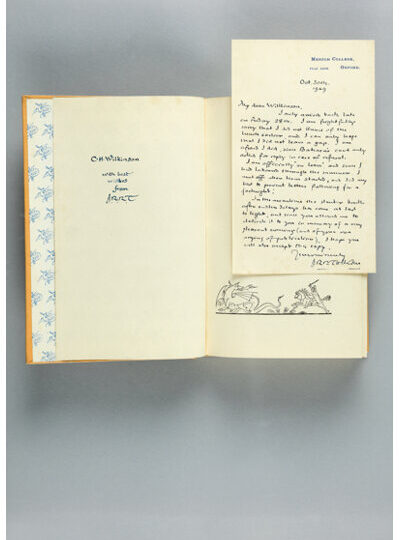 C.H. Wilkinson
with best
wishes
from
JRRT
MERTON COLLEGE,
OXFORD.
Oct. 30th.
1949
My dear Wilkinson,
I only arrived back late
on Friday 28th. I am frightfully
sorry that I did not think of the
and I can only hope
that I did not leave a gap. I am
afraid I did, since card only
asked for reply in case of refusal.
I am officially 'on leave' and since I
had laboured through the summer I
and did my
best to prevent letters following for a
fortnight.
In the meantime the
after delays has come at last
to light, and since you allowed me to
it to you in memory of a very
pleasant evening (and of your own
urging of publication), I hope you
will also accept this copy.
Yours sincerely
JRR Tolkien